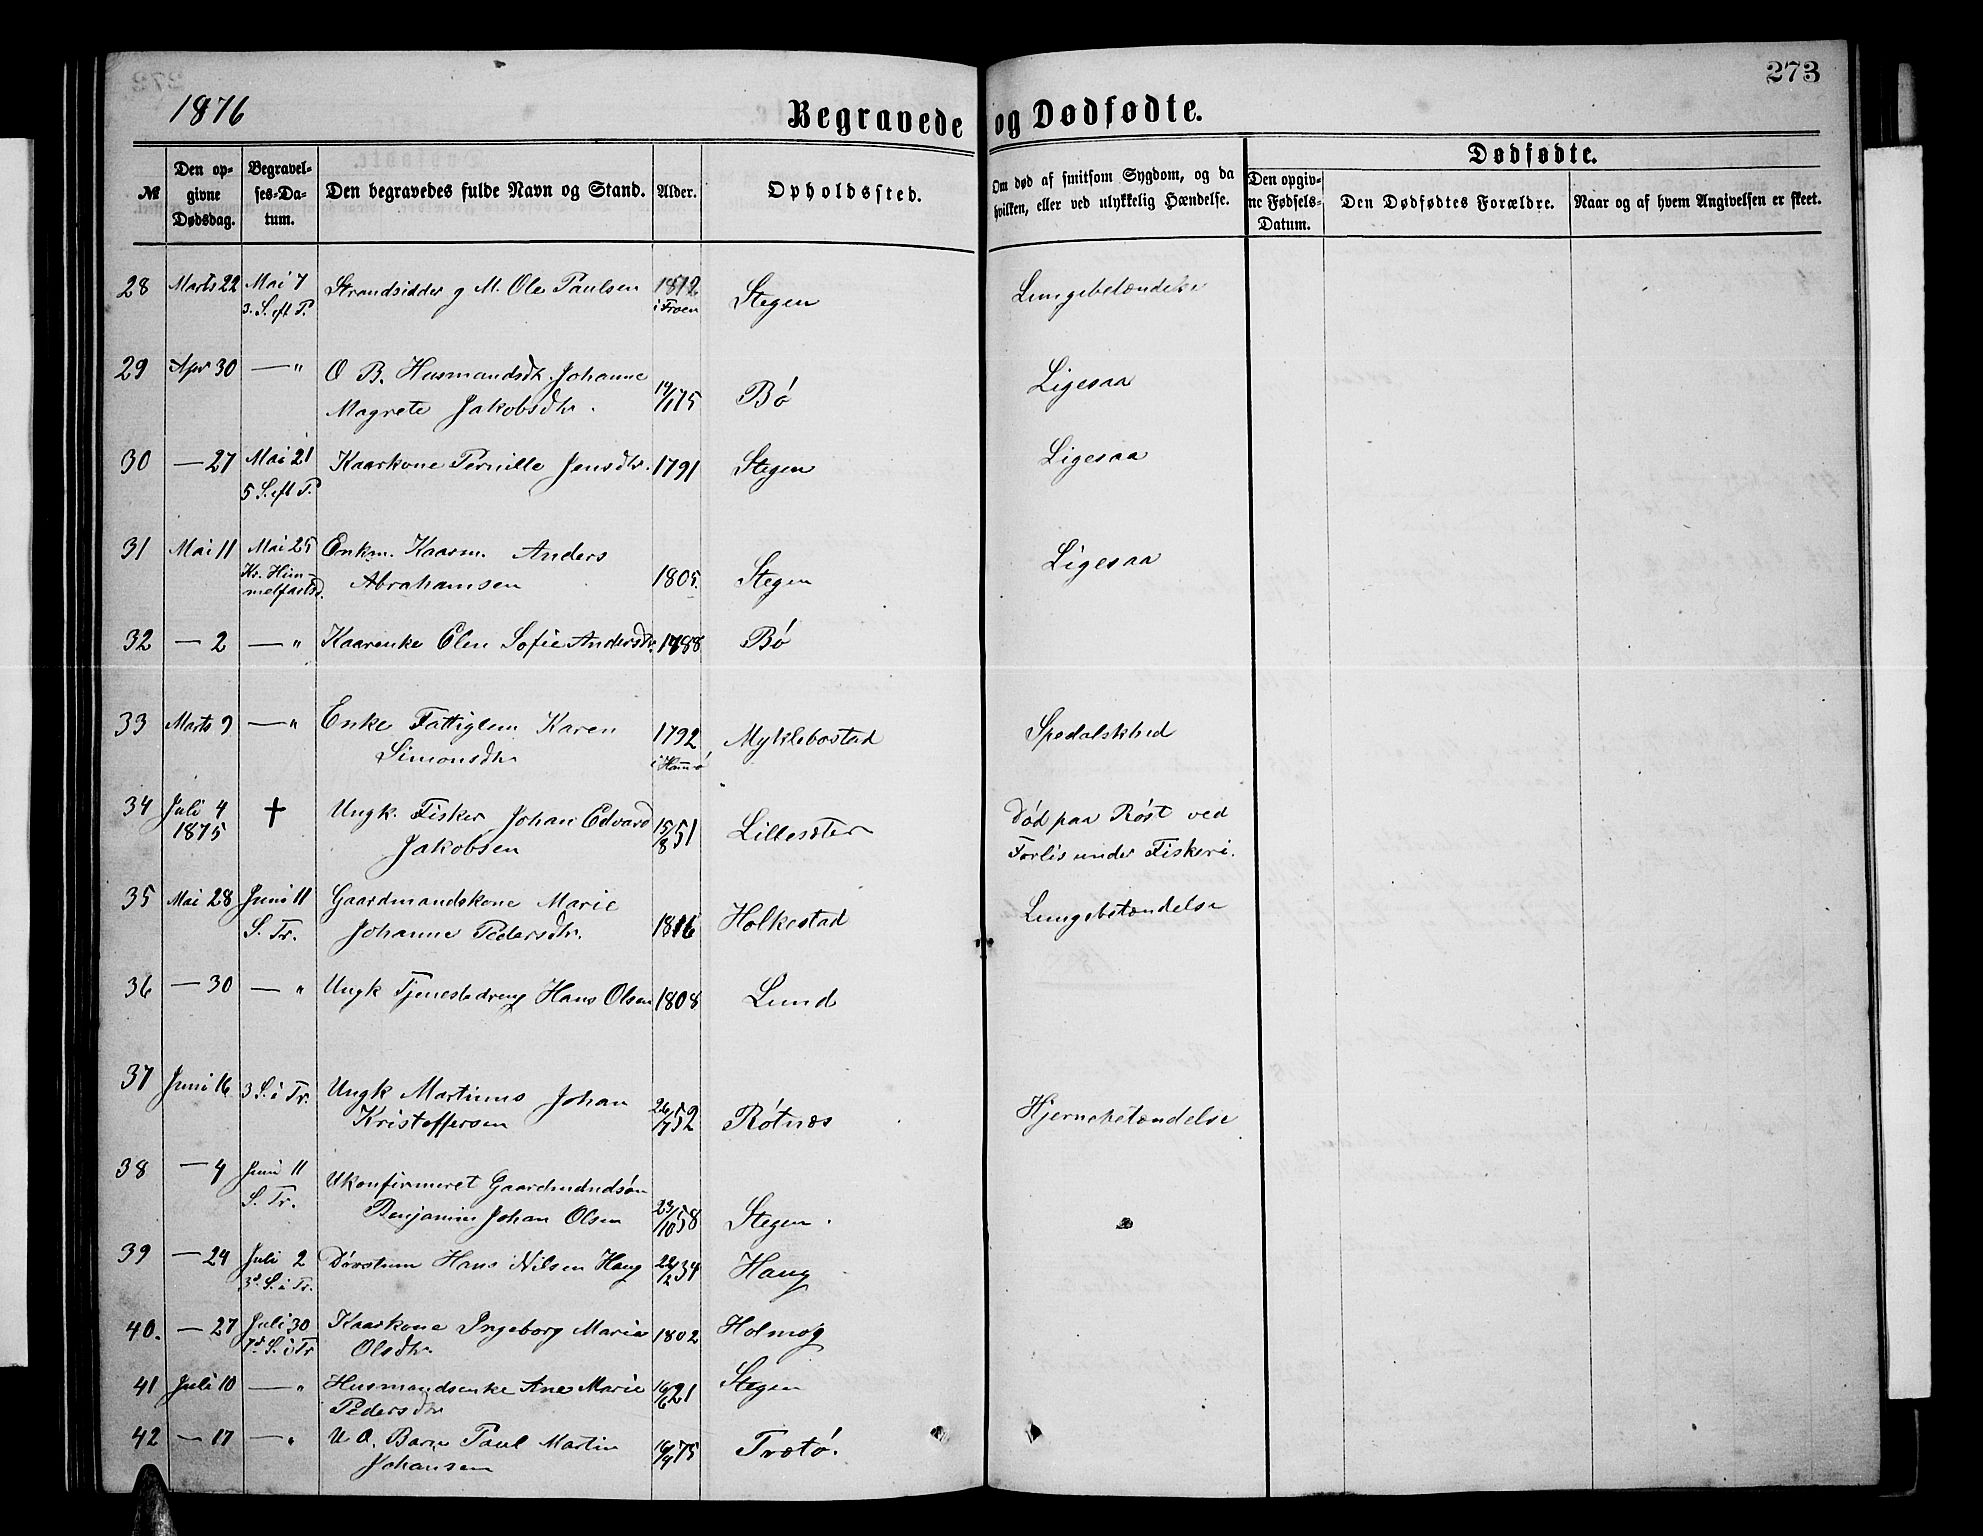 273
1876
Begravede og Dødfødte.
№
Den opgivne Dødsdag.
Begravelses-Datum.
Den begravedes fulde Navn og Stand.
Alder.
Opholdssted.
Om død af smitsom Sygdom, og da hvilken, eller ved ulykkelig Hændelse.
Dødfødte.
Den opgivne Fødsels-Datum.
Den Dødfødtes Forældre.
Naar og af hvem Angivelsen er skeet.
28 Marts 22 Mai 7 Strandsidder g M. Ole Paulsen 1812 Stegen Lungebetændelse
3. S. eft P. i Froen
29 Apr 30 — " O B. Husmandsdtr. Johanne Ligesaa
Magrete Jakobsdtr. 14/1 75 Bø
30 — 27 Mai 21 Kaarkone Pernille Jensdtr. 1791 Stegen Ligesaa
5 S. eft P.
31 Mai 11 Mai 25 Enkm. Kaarm. Anders Ligesaa
Kr. Himmelfartsd. Abrahamsen 1805. Stegen
32 — 2 — " Kaarenke Elen Sofie Andersdtr. 1788 Bø
33 Marts 9 — " Enke Fattiglem Karen 1792 Myklebostad Spedalskhed
Simonsdtr i Hammø
34 Juli 4 † Ungk. Fisker Johan Edvard 15/8 51 Lillesæter Død paa Røst ved
1875 Jakobsen Forlis under Fiskeri.
35 Mai 28 Juni 11 Gaardmandskone Marie Lungebetændelse
S. Tr. Johanne Pedersdtr. 1816 Holkestad
36 — 30 — " Ungk Tjenestedreng Hans Olsen 1808 Lund
37 Juni 16 3 S. i Tr. Ungk Martinus Johan Hjernebetændelse
Kristoffersen 26/7 52 Røtnæs
38 — 4 Juni 11 Ukonfirmeret Gaardmandsøn
S. Tr. Benjamin Johan Olsen 23/10 58 Stegen.
39 — 24 Juli 2 Døvstum Hans Nilsen Haug 22/2 34 Haug
3d. S. i Tr.
40. — 27 Juli 30 Kaarkone Ingeborg Maria 1802 Holmog
7d. S. i Tr Olsdtr.
41 Juli 10 — " Husmandsenke Ane Marie 16/6 21 Stegen
Pedersdtr
42 — 17 — " U O. Barn Paul Martin 16/9 75 Trætø.
Johansen